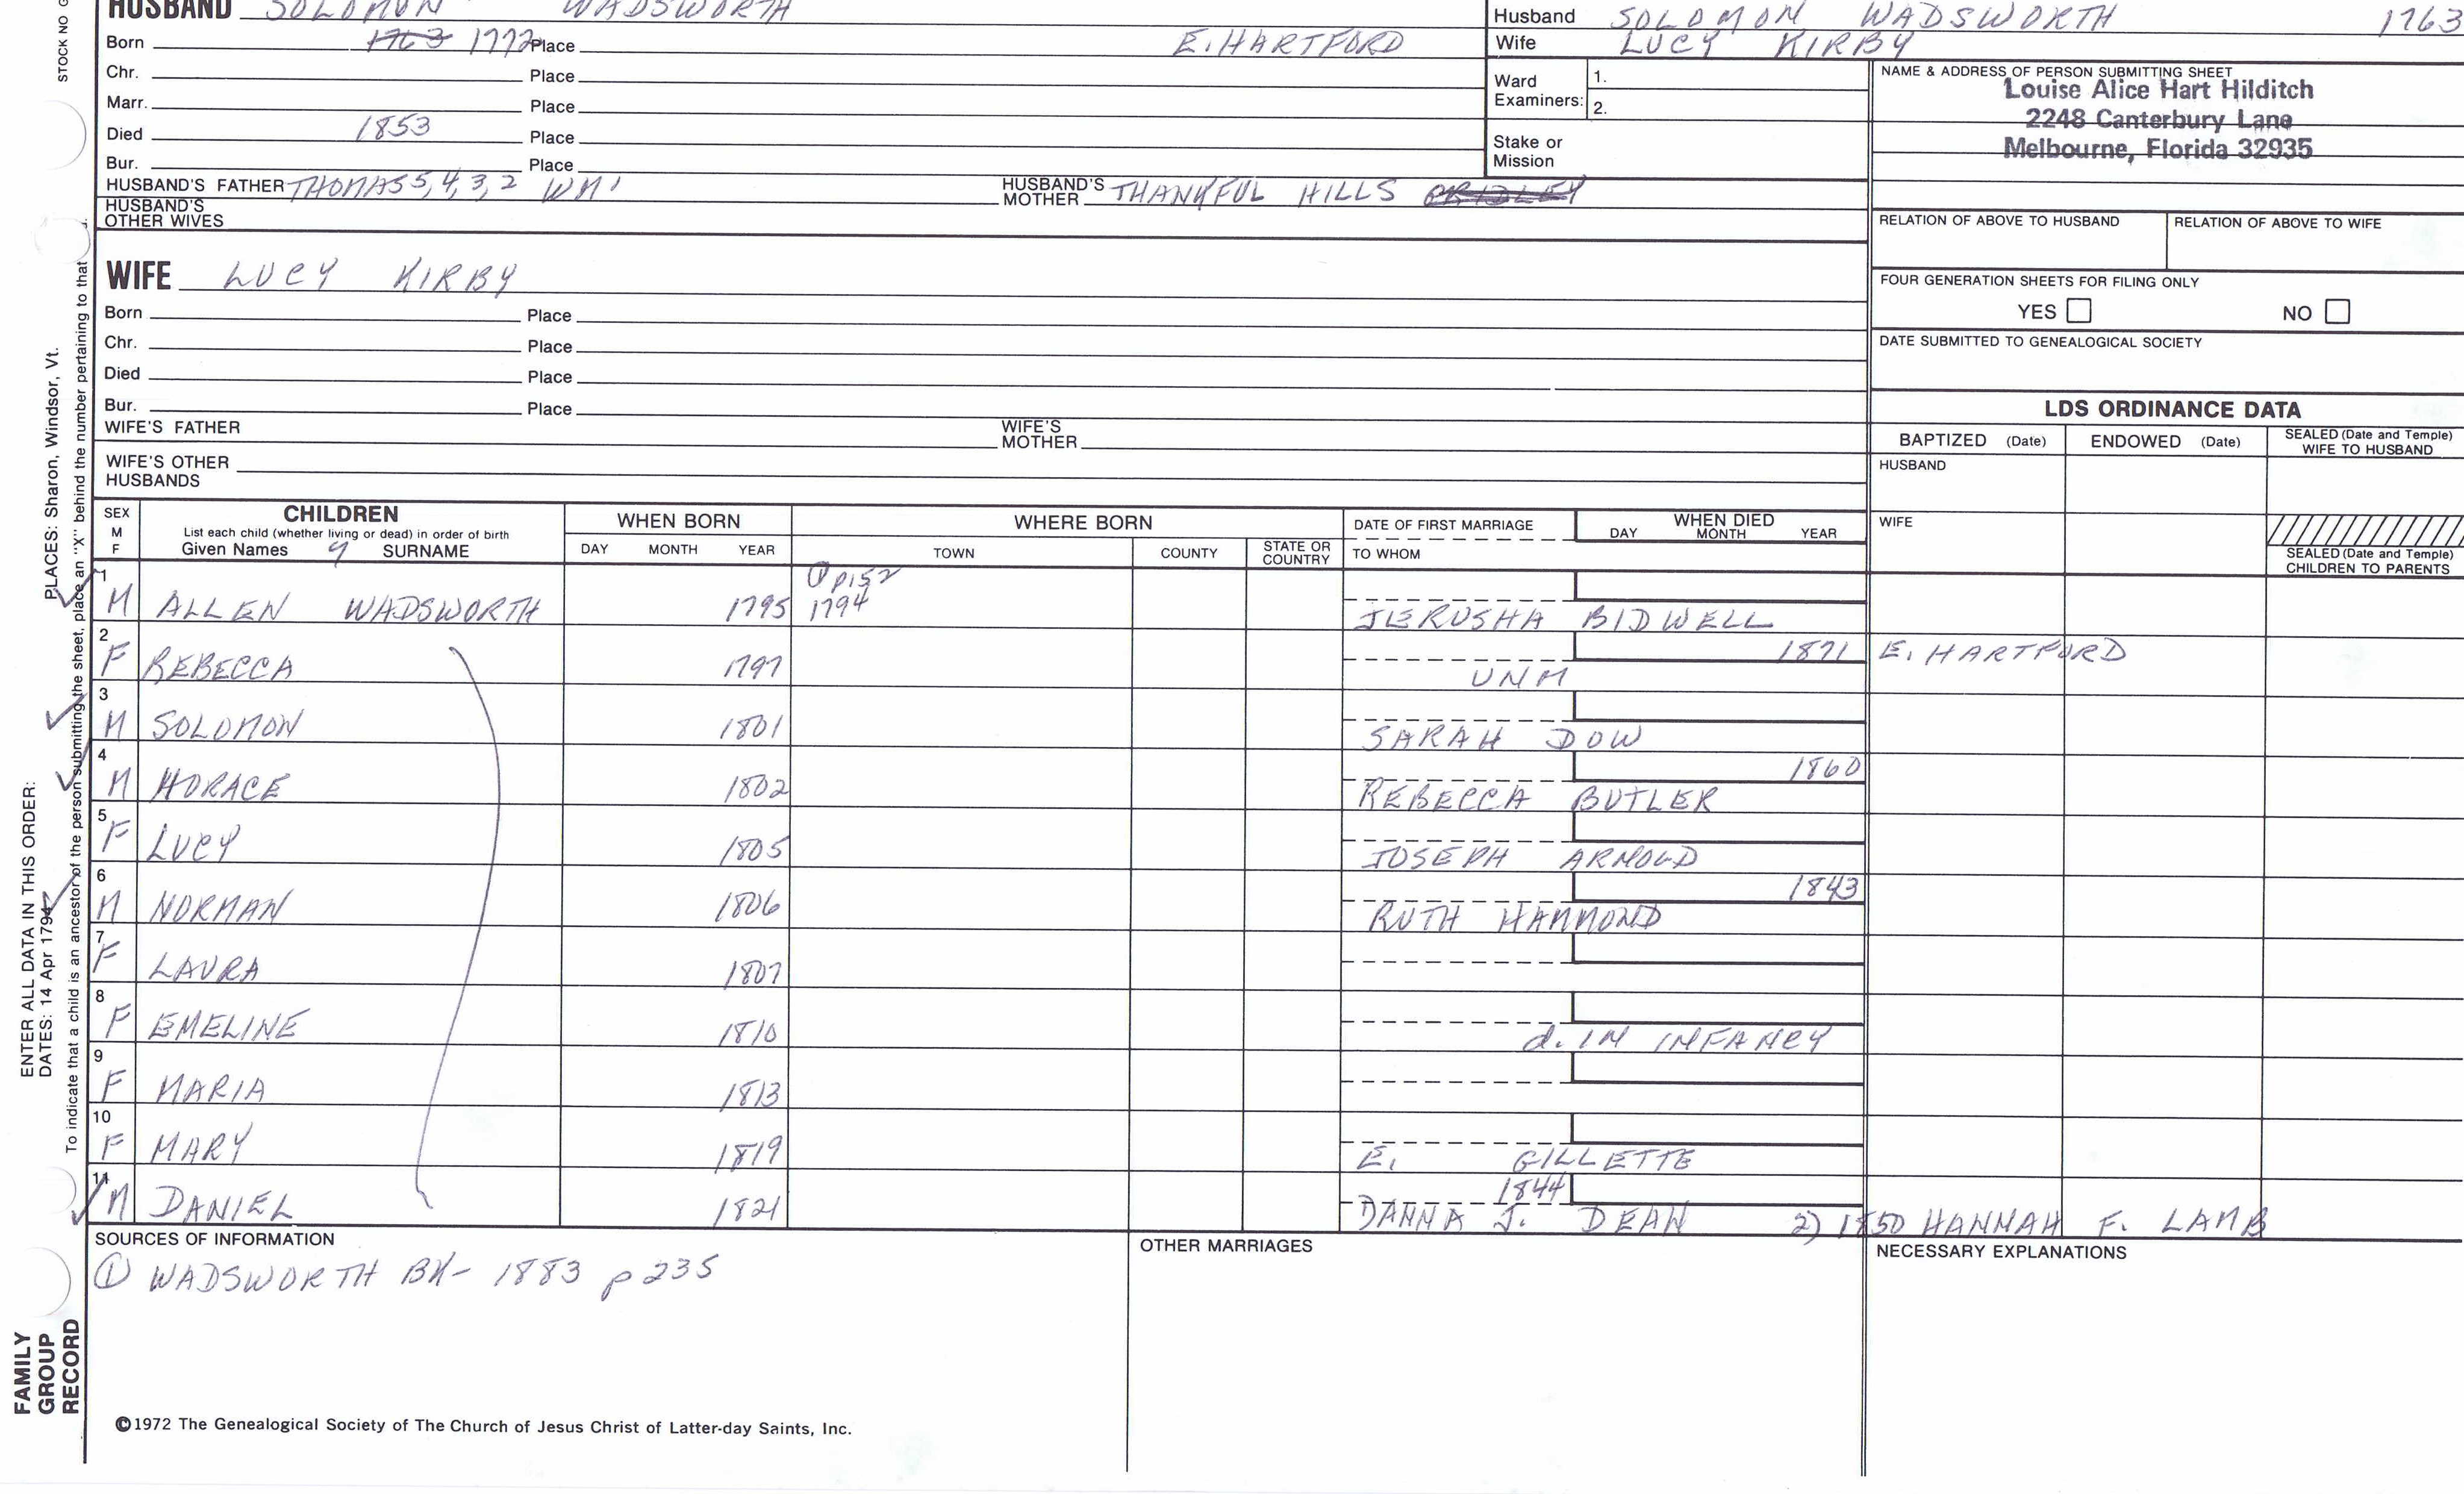 HUSBAND SOLOMON WADSWORTH
Born 1763 1772 Place E. HARTFORD
Chr. Place
Marr. Place
Died 1853 Place
Bur. Place
HUSBAND'S FATHER THOMAS 5, 4, 3, 2 WM 1
HUSBAND'S MOTHER THANKFUL HILLS
HUSBAND'S OTHER WIVES
Husband SOLOMON WADSWORTH 1763
Wife LUCY KIRBY
Ward Examiners: 1.
2.
Stake or Mission
NAME & ADDRESS OF PERSON SUBMITTING SHEET
Louise Alice Hart Hilditch
2248 Canterbury Lane
Melbourne, Florida 32935
RELATION OF ABOVE TO HUSBAND
RELATION OF ABOVE TO WIFE
FOUR GENERATION SHEETS FOR FILING ONLY
YES NO
DATE SUBMITTED TO GENEALOGICAL SOCIETY
WIFE LUCY KIRBY
Born Place
Chr. Place
Died Place
Bur. Place
WIFE'S FATHER
WIFE'S MOTHER
WIFE'S OTHER HUSBANDS
LDS ORDINANCE DATA
BAPTIZED (Date) ENDOWED (Date) SEALED (Date and Temple) WIFE TO HUSBAND
HUSBAND
WIFE
SEALED (Date and Temple) CHILDREN TO PARENTS
SEX M F
CHILDREN
List each child (whether living or dead) in order of birth
Given Names SURNAME
WHEN BORN
DAY MONTH YEAR
WHERE BORN
TOWN COUNTY STATE OR COUNTRY
DATE OF FIRST MARRIAGE
TO WHOM
WHEN DIED
DAY MONTH YEAR
1 M ALLEN WADSWORTH 1795 1 p152 1794 JERUSHA BIDWELL
2 F REBECCA 1797 UNM 1871 E. HARTFORD
3 M SOLOMON 1801 SARAH DOW
4 M HORACE 1802 REBECCA BUTLER 1860
5 F LUCY 1805 JOSEPH ARNOLD
6 M NORMAN 1806 RUTH HAMMOND 1843
7 F LAURA 1807
8 F EMELINE 1810 d. IN INFANCY
9 F MARIA 1813
10 F MARY 1819 E. GILLETTE
11 M DANIEL 1821 1844 DANNA J. DEAN 2) 1850 HANNAH F. LAMB
SOURCES OF INFORMATION
① WADSWORTH BK- 1883 p 235
OTHER MARRIAGES
NECESSARY EXPLANATIONS
©1972 The Genealogical Society of The Church of Jesus Christ of Latter-day Saints, Inc.
STOCK NO
PLACES: Sharon, Windsor, Vt.
ENTER ALL DATA IN THIS ORDER:
DATES: 14 Apr 1794
To indicate that a child is an ancestor of the person submitting the sheet, place an "X" behind the number pertaining to that
FAMILY
GROUP
RECORD